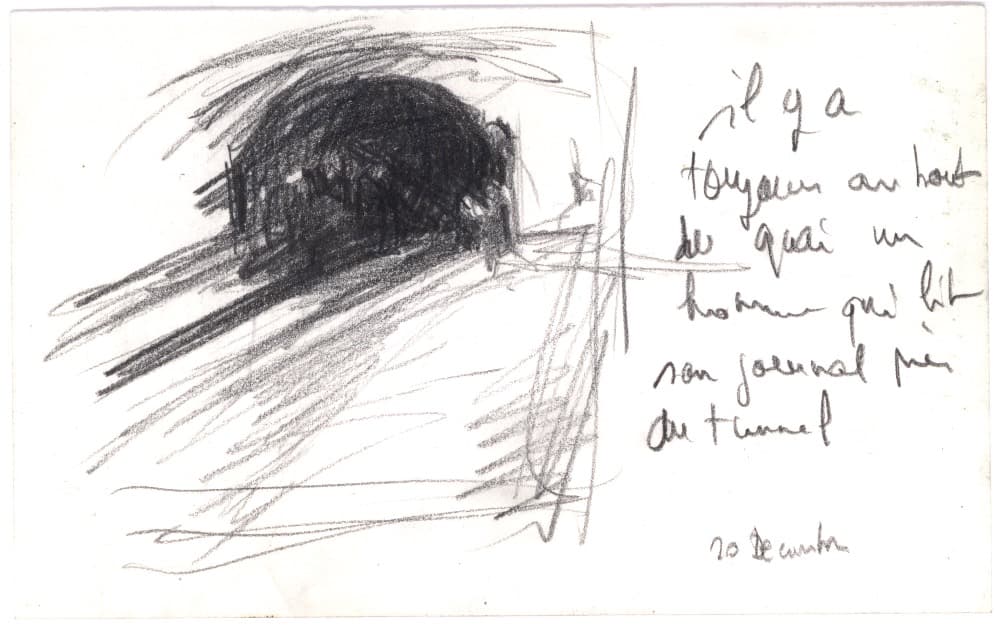 il y a
toujours au bout
du quai un
homme qui lit
son journal près
du tunnel
20 Decembre